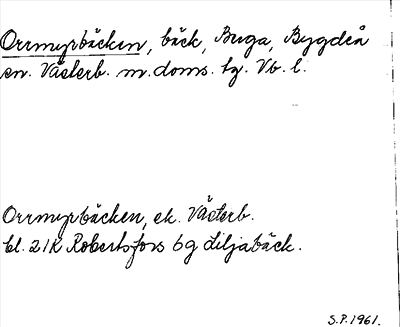 Orrmyrbäcken, bäck, Buga, Bygdeå
sn. Västerb. m. doms. tg. Vb. l.
Orrmyrbäcken, ek. Västerb.
bl. 21K Robertsfors 6g Liljabäck.
S.P. 1961.